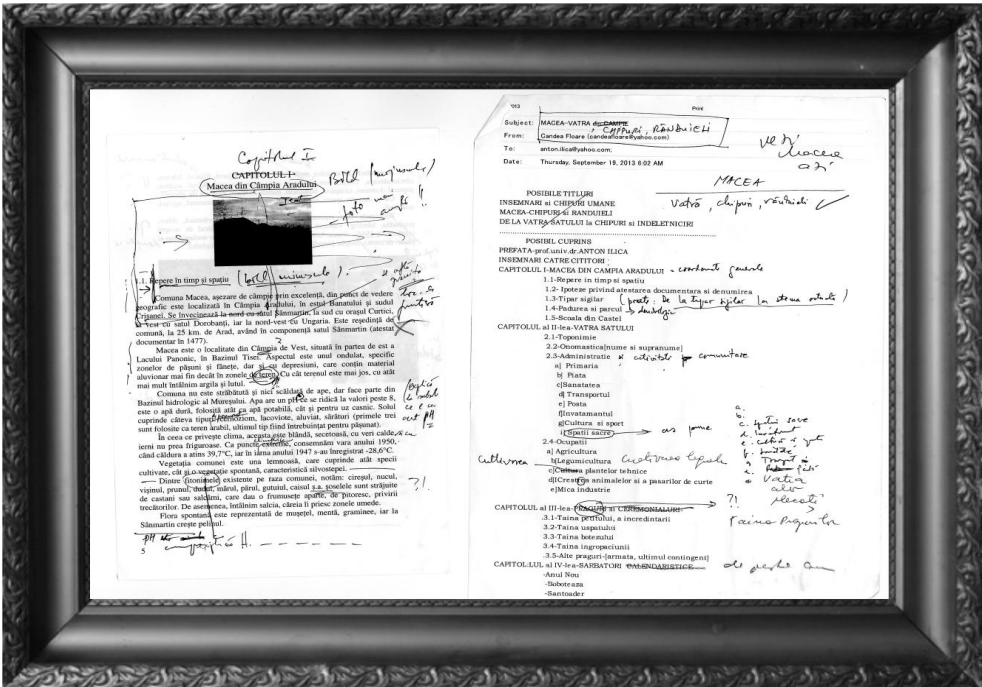 Capitolul I
CAPITOLUL I
Macea din Câmpia Aradului
Bold (majuscule)
foto mai
amplă !!
1.1. Repere în timp și spațiu
(bold minuscule).
Comuna Macea, așezare de câmpie prin excelență, din punct de vedere
geografic este localizată în Câmpia Aradului, în estul Banatului și sudul
Crișanei. Se învecinează la nord cu satul Sânmartin, la sud cu orașul Curtici,
la vest cu satul Dorobanți, iar la nord-vest cu Ungaria. Este reședință de
comună, la 25 km. de Arad, având în componență satul Sânmartin (atestat
documentar în 1477).
Macea este o localitate din Câmpia de Vest, situată în partea de est a
Lacului Panonic, în Bazinul Tisei. Aspectul este unul ondulat, specific
zonelor de pășuni și fânețe, dar și cu depresiuni, care conțin material
aluvionar mai fin decât în zonele de teren. Cu cât terenul este mai jos, cu atât
mai mult întâlnim argila și lutul.
Comuna nu este străbătută și nici scăldată de ape, dar face parte din
Bazinul hidrologic al Mureșului. Apa are un pH ce se ridică la valori peste 8,
este o apă dură, folosită atât ca apă potabilă, cât și pentru uz casnic. Solul
cuprinde câteva tipuri: cernoziom, lacoviște, aluviat, sărături (primele trei
sunt folosite ca teren arabil, ultimul tip fiind întrebuințat pentru pășunat).
În ceea ce privește clima, aceasta este blândă, secetoasă, cu veri calde
ierni nu prea friguroase. Ca puncte extreme, consemnăm vara anului 1950,
când căldura a atins 39,7°C, iar în iarna anului 1947 s-au înregistrat -28,6°C.
Vegetația comunei este una lemnoasă, care cuprinde atât specii
cultivate, cât și o vegetație spontană, caracteristică silvostepei.
Dintre fitonimele existente pe raza comunei, notăm: cireșul, nucul,
vișinul, prunul, dudul, mărul, părul, gutuiul, caisul s.a. șoselele sunt străjuite
de castani sau salcâmi, care dau o frumusețe aparte, de pitoresc, privirii
trecătorilor. De asemenea, întâlnim salcia, căreia îi priesc zonele umede.
Flora spontană este reprezentată de mușețel, mentă, graminee, iar la
Sânmartin crește pelinul.
?!
5
'013
Print
Subject: MACEA-VATRA din CAMPIE
, CHIPURI, RÂNDUIELI
From: Gandea Floare (oandeafloare@yahoo.com)
To: anton.ilica@yahoo.com;
Date: Thursday, September 19, 2013 6:02 AM
vezi
Macea
azi
MACEA
Vatră, chipuri, rânduieli
POSIBILE TITLURI
INSEMNARI si CHIPURI UMANE
MACEA-CHIPURI si RANDUIELI
DE LA VATRA SATULUI la CHIPURI si INDELETNICIRI
POSIBIL CUPRINS
PREFATA-prof.univ.dr.ANTON ILICA
INSEMNARI CATRE CITITORI
CAPITOLUL I-MACEA DIN CAMPIA ARADULUI - coordonate generale
1.1-Repere in timp si spatiu
1.2- Ipoteze privind atestarea documentara si denumirea
1.3-Tipar sigilar (poate: De la tipar sigilar la stema actuală)
1.4-Padurea si parcul
1.5-Scoala din Castel
CAPITOLUL al II-lea-VATRA SATULUI
2.1-Toponimie
2.2-Onomastica[nume si supranume]
2.3-Administratie si activitate comunitare
a] Primaria
b] Piata
c]Sanatatea
d] Transportul
e] Posta
f]Invatamantul
g]Cultura si sport
i]Spatii sacre
2.4-Ocupatii
a] Agricultura
b]Legumicultura Cultivarea legumelor
Cultivarea
c]Cultura plantelor tehnice
d]Cresterea animalelor si a pasarilor de curte
e]Mica industrie
a.
b.
?!
plecați
CAPITOLUL al III-lea-PRAGURI si CEREMONIALURI
Taina Pragurilor
.3.1-Taina petitului, a incredintarii
3.2-Taina uspatului
3.3-Taina botezului
3.4-Taina ingropaciunii
.3.5-Alte praguri-[armata, ultimul contingent]
CAPITOL:LUL al IV-lea-SARBATORI CALENDARISTICE de peste an
-Anul Nou
-Boboteaza
-Santoader